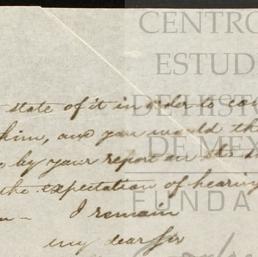 CENTRO
ESTUD
DE HIST
DE MÉX
FUNDA
state of it in order to
him, and you would
by your report on
the expectation of hearing
I remain
my dear Sir